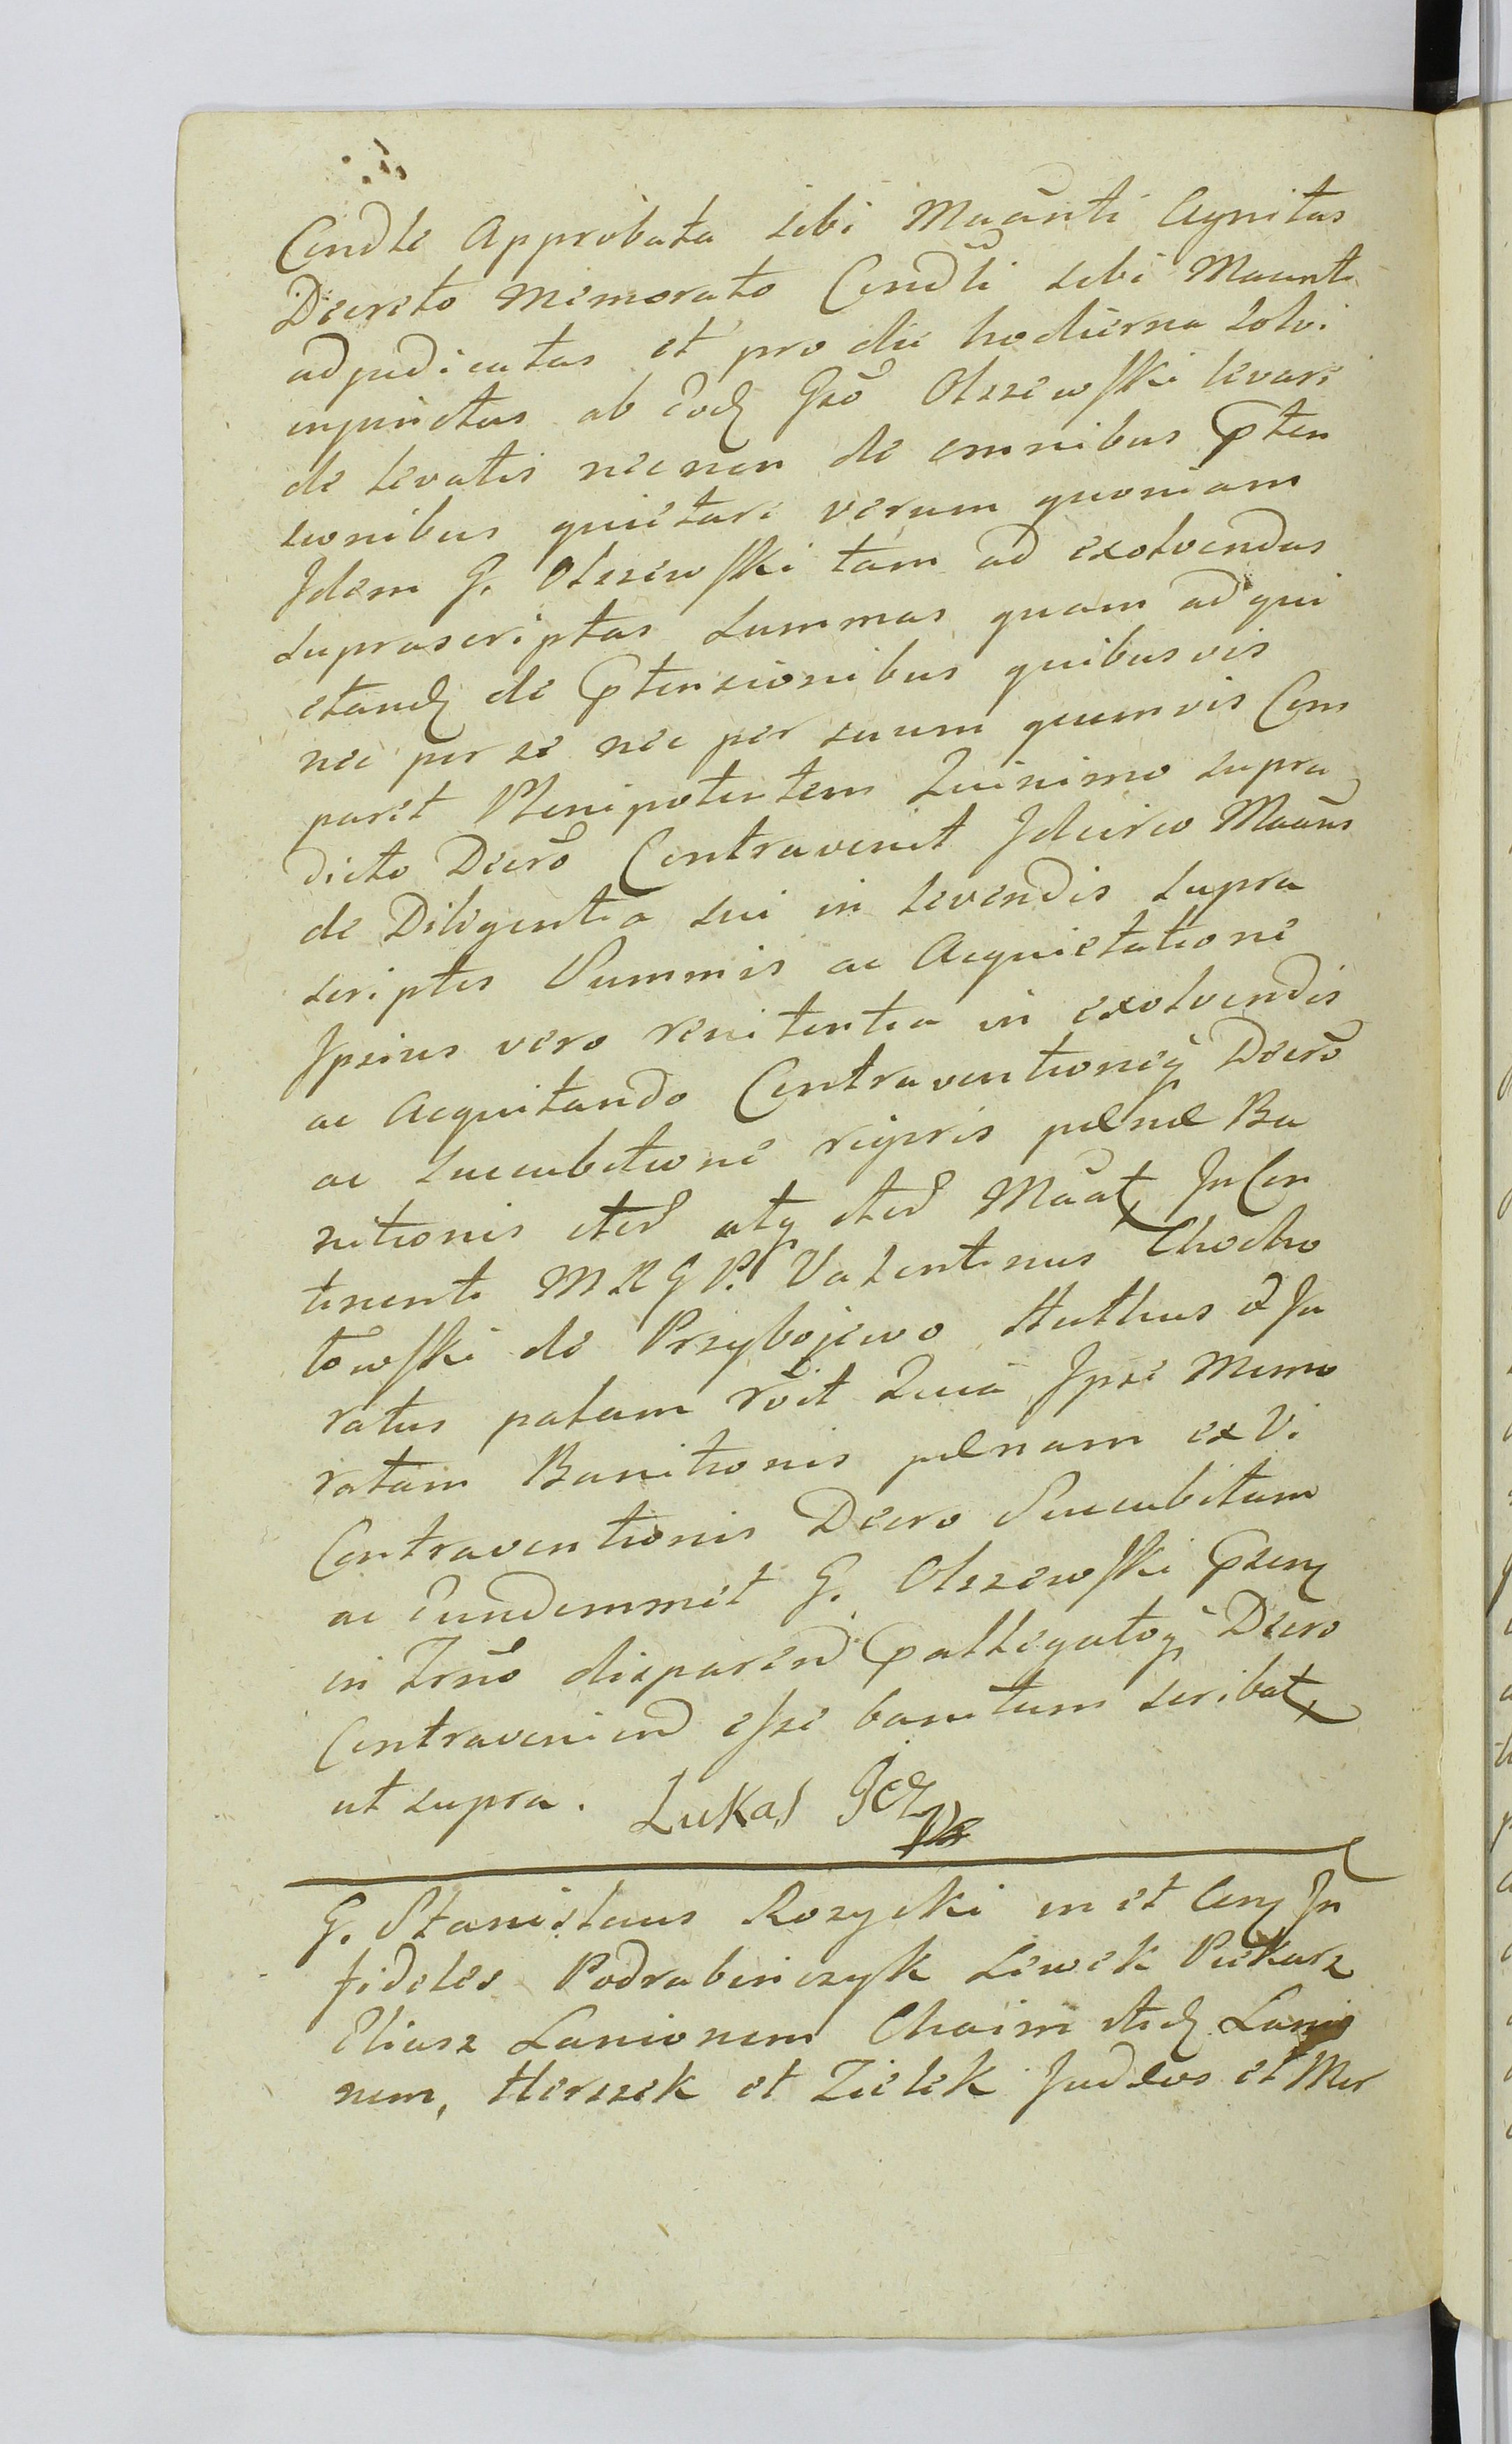 Condle Approbata sibi Maanti Agnitas
Decreto memorato Condli sibi Maanti
adjudicatas et pro die hodierna solvi
injunctas ab Eod Gso Olszewski levari
de levatis necnon de omnibus Pten
sionibus quietari verum quoniam
Idem G. Olszewski tam ad exolvendas
suprascriptas summas quam ad qui
etand de Ptensionibus quibusvis
nec per se nec per suum quemvis Com
paret Plenipotentem Quinimo supra
dicto Decro Contravenit Idcirco Maans
de Diligentia sui in levendis supra
scriptis Summis ac Acquietatione
Ipsius vero renitentia in exolvendis
ac Acquitando Contraventioneq Decro
ac succubitione rigoris pænæ Ba
nitionis itid atq itid Maat In Con
tinenti MRGP. Valentinus Chocho
towski de Przybojewo Huttus et Ju
ratus palam rōit Quia Ipse Memo
ratam Banitionis pænam ex Vi
Contraventionis Decro Succubitam
ac Eundemmet G. Olszewski Psen
in Trno disparend Pallegatoq Decro
Contraveniend esse banitum scribat
ut supra. Lukas
G. Stanislaus Rozycki in et Con In
fideles Podrabinczyk Lewek Piekarz
Eliasz Lanionem Chaim itid Lanio
nem, Herszek et Zielek Judæos et Mer